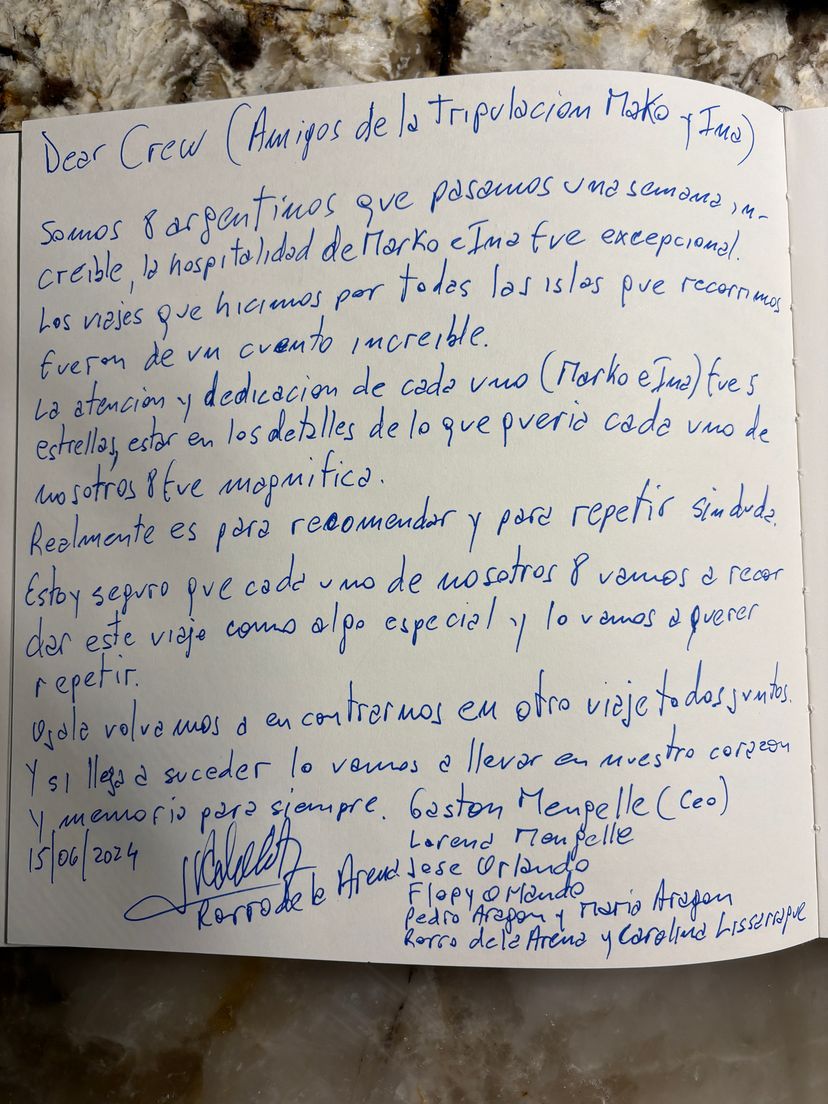 Dear Crew (Amigos de la tripulacion Mako y Ina)
Somos 8 argentinos que pasamos una semana in-
creible, la hospitalidad de Marko e Ina fue excepcional.
Los viajes que hicimos por todas las islas que recorrimos
fueron de un cuento increible.
La atención y dedicacion de cada uno (Marko e Ina) fue 5
estrellas, estar en los detalles de lo que queria cada uno de
nosotros 8 fue magnifica.
Realmente es para recomendar y para repetir sin duda.
Estoy seguro que cada uno de nosotros 8 vamos a recor
dar este viaje como algo especial y lo vamos a querer
repetir.
Ojala volvamos a encontrarnos en otro viaje todos juntos.
Y si llega a suceder lo vamos a llevar en nuestro corazon
y memoria para siempre. Gaston Mengelle (Ceo)
Lorena Mengelle
15/06/2024
Jose Orlando
Flopy Orlando
Rorro de la Arena
Pedro Aragon y Maria Aragon
Rorro de la Arena y Carolina Lissarrague